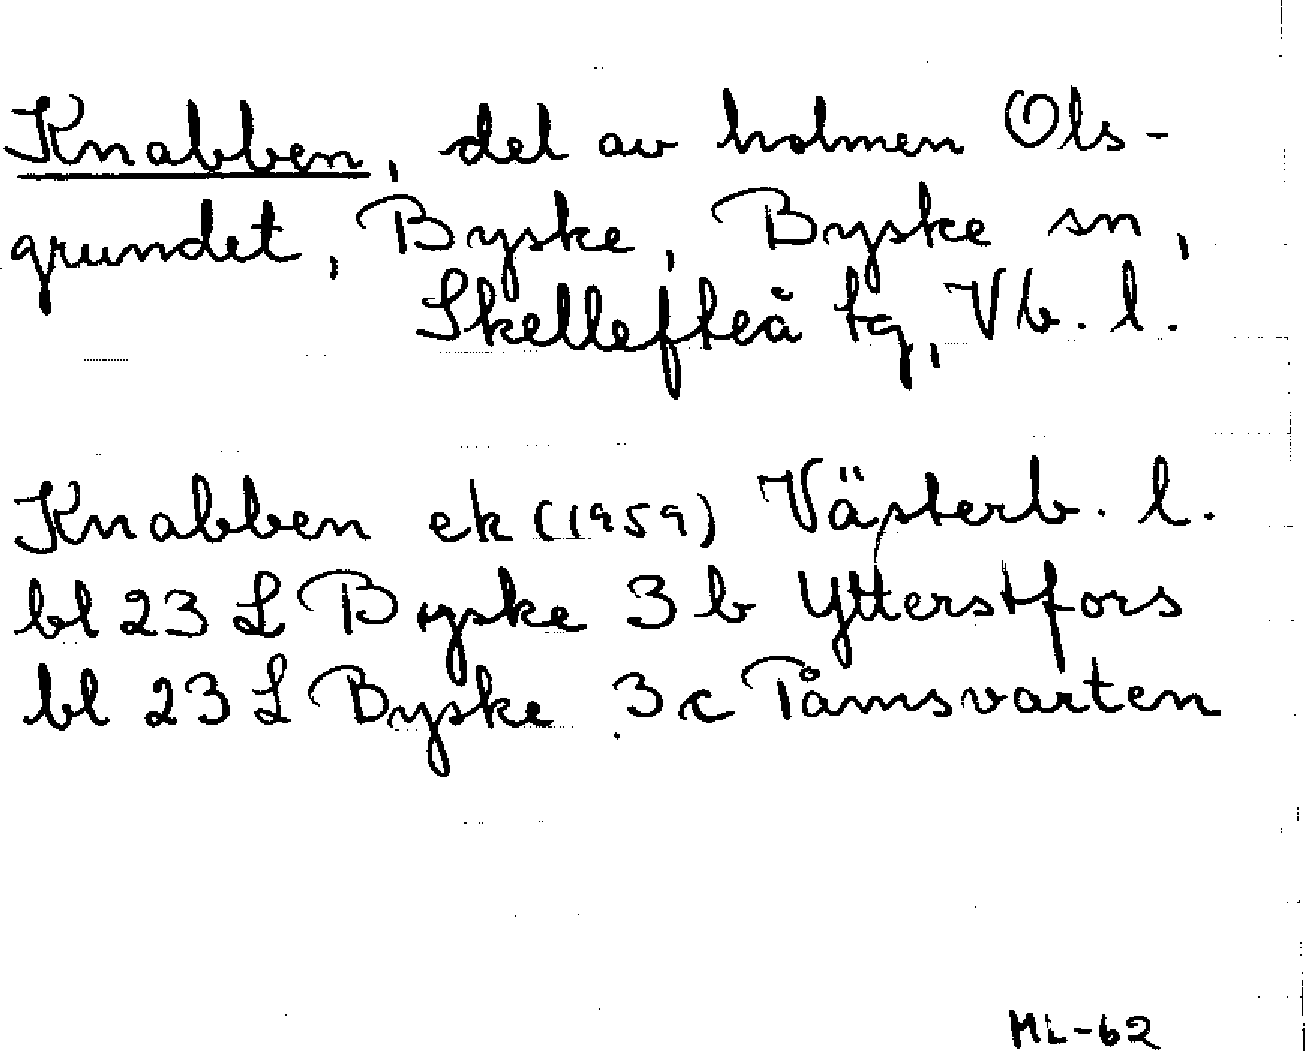 Knabben, del av holmen Ols-
grundet, Byske, Byske sn,
Skellefteå tg, Vb. l.
Knabben ek (1959) Västerb. l.
bl 23 L Byske 3 b Ytterstfors
bl 23 L Byske 3 c Tåmsvarten
ML-62